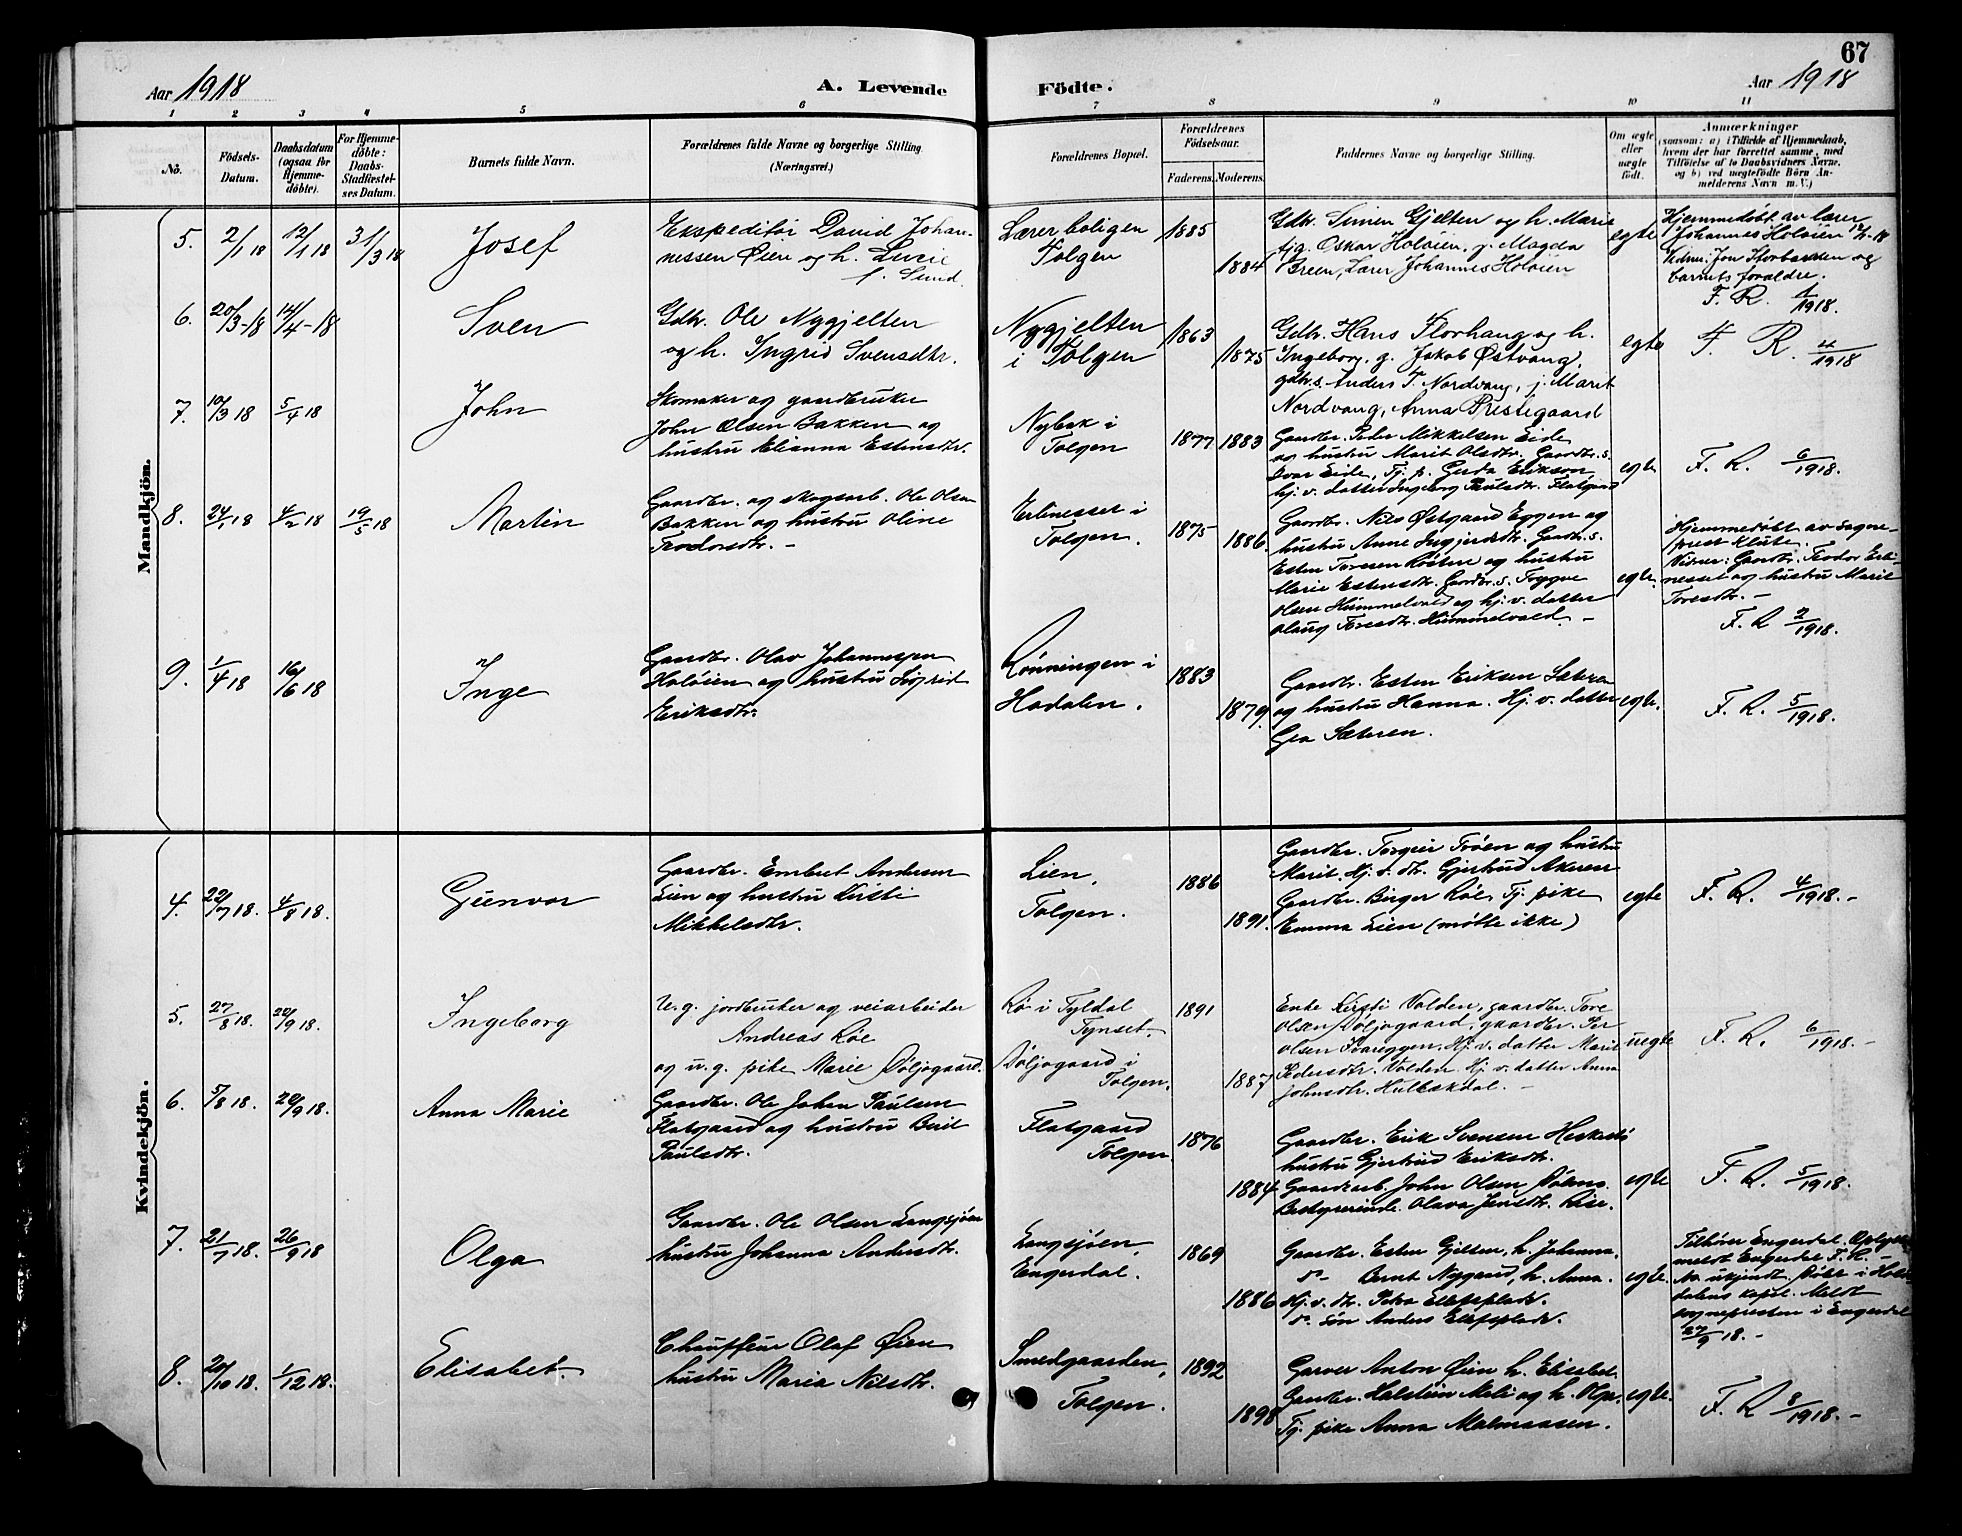 67
Aar 1918
A. Levende Födte.
Aar 1918
1 2 3 4 5 6 7 8 9 10 11
No.
Födsels-
Datum.
Daabsdatum
(ogsaa for
Hjemme-
döbte).
For Hjemme-
döbte:
Daabs-
Stadfæstel-
ses Datum.
Barnets fulde Navn.
Forældrenes fulde Navne og borgerlige Stilling
(Næringsvei.)
Forældrenes Bopæl.
Forældrenes
Födselsaar.
Faderens. Moderens.
Faddernes Navne og borgerlige Stilling.
Om ægte
eller
uægte
födt.
Anmærkninger
(saasom: a) i Tilfælde af Hjemmedaab,
hvem der har forrettet samme, med
Tilföielse af to Daabsvidners Navne.
og b) ved uægtefödte Börn An-
melderens Navn m. V.)
Mandkjön.
5. 2/1 18 12/1 18 31/3 18
Josef
Ekspeditør David Johan-
nessen Øien og h. Lucie
f. Sund.
Lærerboligen
Tolgen
1885
1884
Gdbr. Simen Gjelten og h. Marit
tjg. Oskar Holøien, p. Magda
Breen, Lærer Johannes Holøien
egte
Hjemmedøbt av lærer
Johannes Holøien 12/1-18
Vidner: Jon Storbækken og
barnets forældre.
F. R. 1/1918.
6. 20/3-18 14/4-18
Sven
Gdbr. Ole Nygjelten
og h. Ingrid Svensdtr.
Nygjelten
i Tolgen
1863
1875
Gdbr. Hans Florhaug og h.
Ingeborg, g. Jakob Østvang,
gdbr.s. Anders T. Nordvang, j. Marit
Nordvang, Anna Prestegaard
egte
F. R. 4/1918
7. 10/3 18 5/4 18
John
Skomaker og gaardbruker
John Olsen Bakken og
hustru Elianna Estensdtr.
Nybæk i
Tolgen
1877 1883
Gaardbr. Peder Mikkelsen Eide
og hustru Marit Olsdtr. Gaardbr.s.
Ivar Eide, Tj. p. Gerda Erikson
hj. v. datter Ingeborg Paulsdtr. Flatgaard
egte
F. R. 6/1918.
8. 24/1 18 4/2 18 19/5 18
Martin
Gaardbr. og skogsarb. Ole Olsen
Bakken og hustru Oline
Teodorsdtr. -
Erlienesset i
Tolgen.
1875
1886.
Gaardbr. Nils Østgaard Eggen og
hustru Anne Ingjerdsdtr. Gaardbr. s.
Esten Toresen Røstne og hustru
Marie Estensdtr. Gaardbr. s. Trygve
Olsen Hummelvold og hj. v. datter
Olaug Toresdtr. Hummelvold. -
egte.
Hjemmedøbt av sogne-
prest Kluke.
Vidner: Gaardbr. Teodor Erli-
nesset og hustru Marit
Toresdtr. -
F. R 2/1918.
9. 1/4 18 16/6 18
Inge
Gaardbr. Olav Johannessen
Holøien og hustru Sigrid
Eriksdtr.
Rønningen i
Hodalen.
1883
1879.
Gaardbr. Esten Eriksen Sætern
og hustru Hanna. Hj. v. datter
Gea Sæteren.
egte.
F. R. 5/1918.
Kvindekjön.
4. 22/7 18. 4/8 18.
Gunvor
Gaardbr. Embret Andersen
Lien og hustru Kirsti
Mikkelsdtr.
Lien,
Tolgen.
1886
1891.
Gaardbr. Torgeir Trøen og hustru
Marit. Hj. v. dtr. Gjertrud Akeren
Gaardbr. Birger Røe, Tj. pike
Emma Lien (møtte ikke)
egte
F. R. 4/1918. -
5. 27/8 18. 22/9 18.
Ingeborg
U. g. jordbruker og veiarbeider
Andreas Røe
og u. g. pike Marie Døljogaard.
Rø i Tyldal
Tynset.
Døljogaard i
Tolgen.
1891
1887
Enke Kirsti Volden, gaardbr. Tore
Olsen Døljogaard, gaardbr. Per
Olsen Kvareggen. Hj. v. datter Marit
Pedersdtr. Volden. Hj. v. datter Anna
Johnsdtr. Hulbækdal. -
uegte
F. R. 6/1918. -
6. 5/8 18. 20/9 18.
Anna Marie
Gaardbr. Ole Johan Paulsen
Flatgaard og hustru Berit
Paulsdtr.
Flatgaard
Tolgen.
1876
1884
Gaardbr. Erik Svensen
hustru Gjertrud Eriksdtr.
Gaardsarb. John Olsen
Bestyrerinde. Olava Jensdtr. Riise.
egte
F. R. 5/1918.
7. 21/7 18. 26/9 18
Olga
Gaardbr. Ole Olsen Langsjøen
hustru Johanna Andersdtr.
Langsjøen,
Engerdal.
1869
1886
Gaardbr. Esten Gjelten, h. Johanna.
do- Bernt Nygaard, h. Anna.
Hj. v. dtr. Petra Elgsplads.
do. søn Anders Elgsplads.
egte.
Tilhører Engerdal.
meldt Engerdal F. R. -
No. ukjendt. Døbt i Hol-
dalens kapel. Meldt
sognepresten i Engerdal
27/9 18. -
8. 20/10 18. 1/12 18.
Elisabet
Chauffeur Olaf Øien
hustru Maria Nilsdtr.
Smedgaarden,
Tolgen.
1892
1898
Garver Anton Øien h. Elisabet.
Gaardbr. Halstein Moli og h. Olga.
Tj. pike Anna Malmaasen.
egte.
F. R 8/1918. -